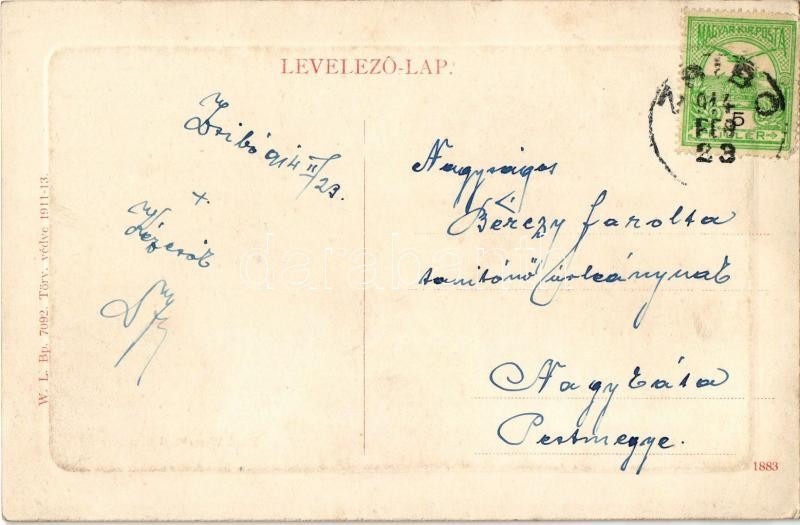 LEVELEZŐ-LAP.
MAGYAR KIR. POSTA
ZSIBÓ
914
FEB
23
5
Zsibó 914 II/23.
Nagyságos
Bérczy Sarolta
tanítónő úrleánynak
Nagykáta
Pestmegye.
Kézcsók
W. L. Bp. 7092. Törv. védve 1911-13.
1883
darabanth